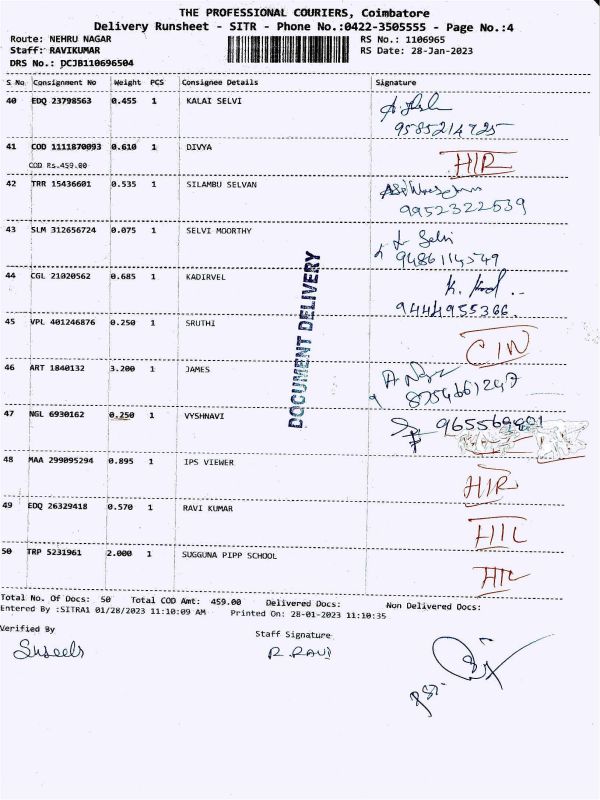 THE PROFESSIONAL COURIERS, Coimbatore
Delivery Runsheet - SITR - Phone No.:0422-3505555 - Page No.:4
Route: NEHRU NAGAR RS No.: 1106965
Staff: RAVIKUMAR RS Date: 28-Jan-2023
DRS No.: DCJB110696504
S No Consignment No Weight PCS Consignee Details Signature
40 EDQ 23798563 0.455 1 KALAI SELVI
9585214725
41 COD 1111870093 0.610 1 DIVYA HIR
COD Rs.459.00
42 TRR 15436601 0.535 1 SILAMBU SELVAN
9952322539
43 SLM 312656724 0.075 1 SELVI MOORTHY Selvi
9486114549
44 CGL 21020562 0.685 1 KADIRVEL K.
9444955366.
45 VPL 401246876 0.250 1 SRUTHI
CIN
46 ART 1840132 3.200 1 JAMES
8754661247
47 NGL 6930162 0.250 1 VYSHNAVI
48 MAA 299095294 0.895 1 IPS VIEWER HIR
49 EDQ 26329418 0.570 1 RAVI KUMAR HIL
50 TRP 5231961 2.000 1 SUGGUNA PIPP SCHOOL HIL
DOCUMENT DELIVERY
Total No. Of Docs: 50 Total COD Amt: 459.00 Delivered Docs: Non Delivered Docs:
Entered By :SITRA1 01/28/2023 11:10:09 AM Printed On: 28-01-2023 11:10:35
Verified By Staff Signature
Suseels R.RAVI